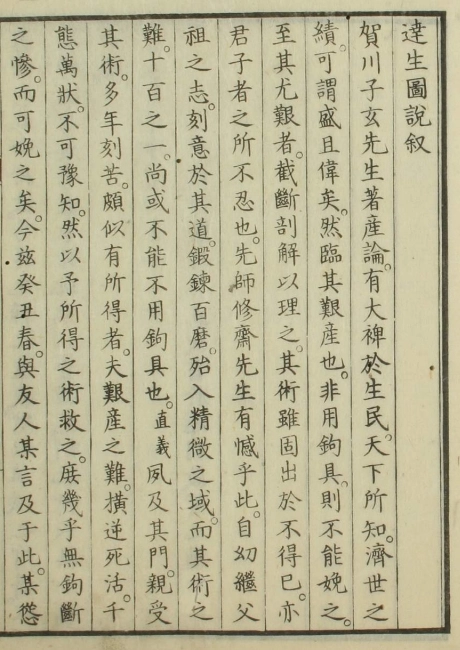 達生圖說叙
賀川子玄先生著産論。有大裨於生民。天下所知。濟世之
績。可謂盛且偉矣。然臨其艱産也。非用鉤具。則不能娩之。
至其尤艱者。截斷剖解以理之。其術雖固出於不得已。亦
君子者之所不忍也。先師修齋先生有憾乎此。自幼繼父
祖之志。刻意於其道。鍛鍊百磨。殆入精微之域。而其術之
難。十百之一。尚或不能不用鉤具也。直義夙及其門。親受
其術。多年刻苦。頗似有所得者。夫艱産之難。橫逆死活。千
態萬狀。不可豫知。然以予所得之術救之。庶幾乎無鉤斷
之慘。而可娩之矣。今茲癸丑春。與友人某言及于此。某慫